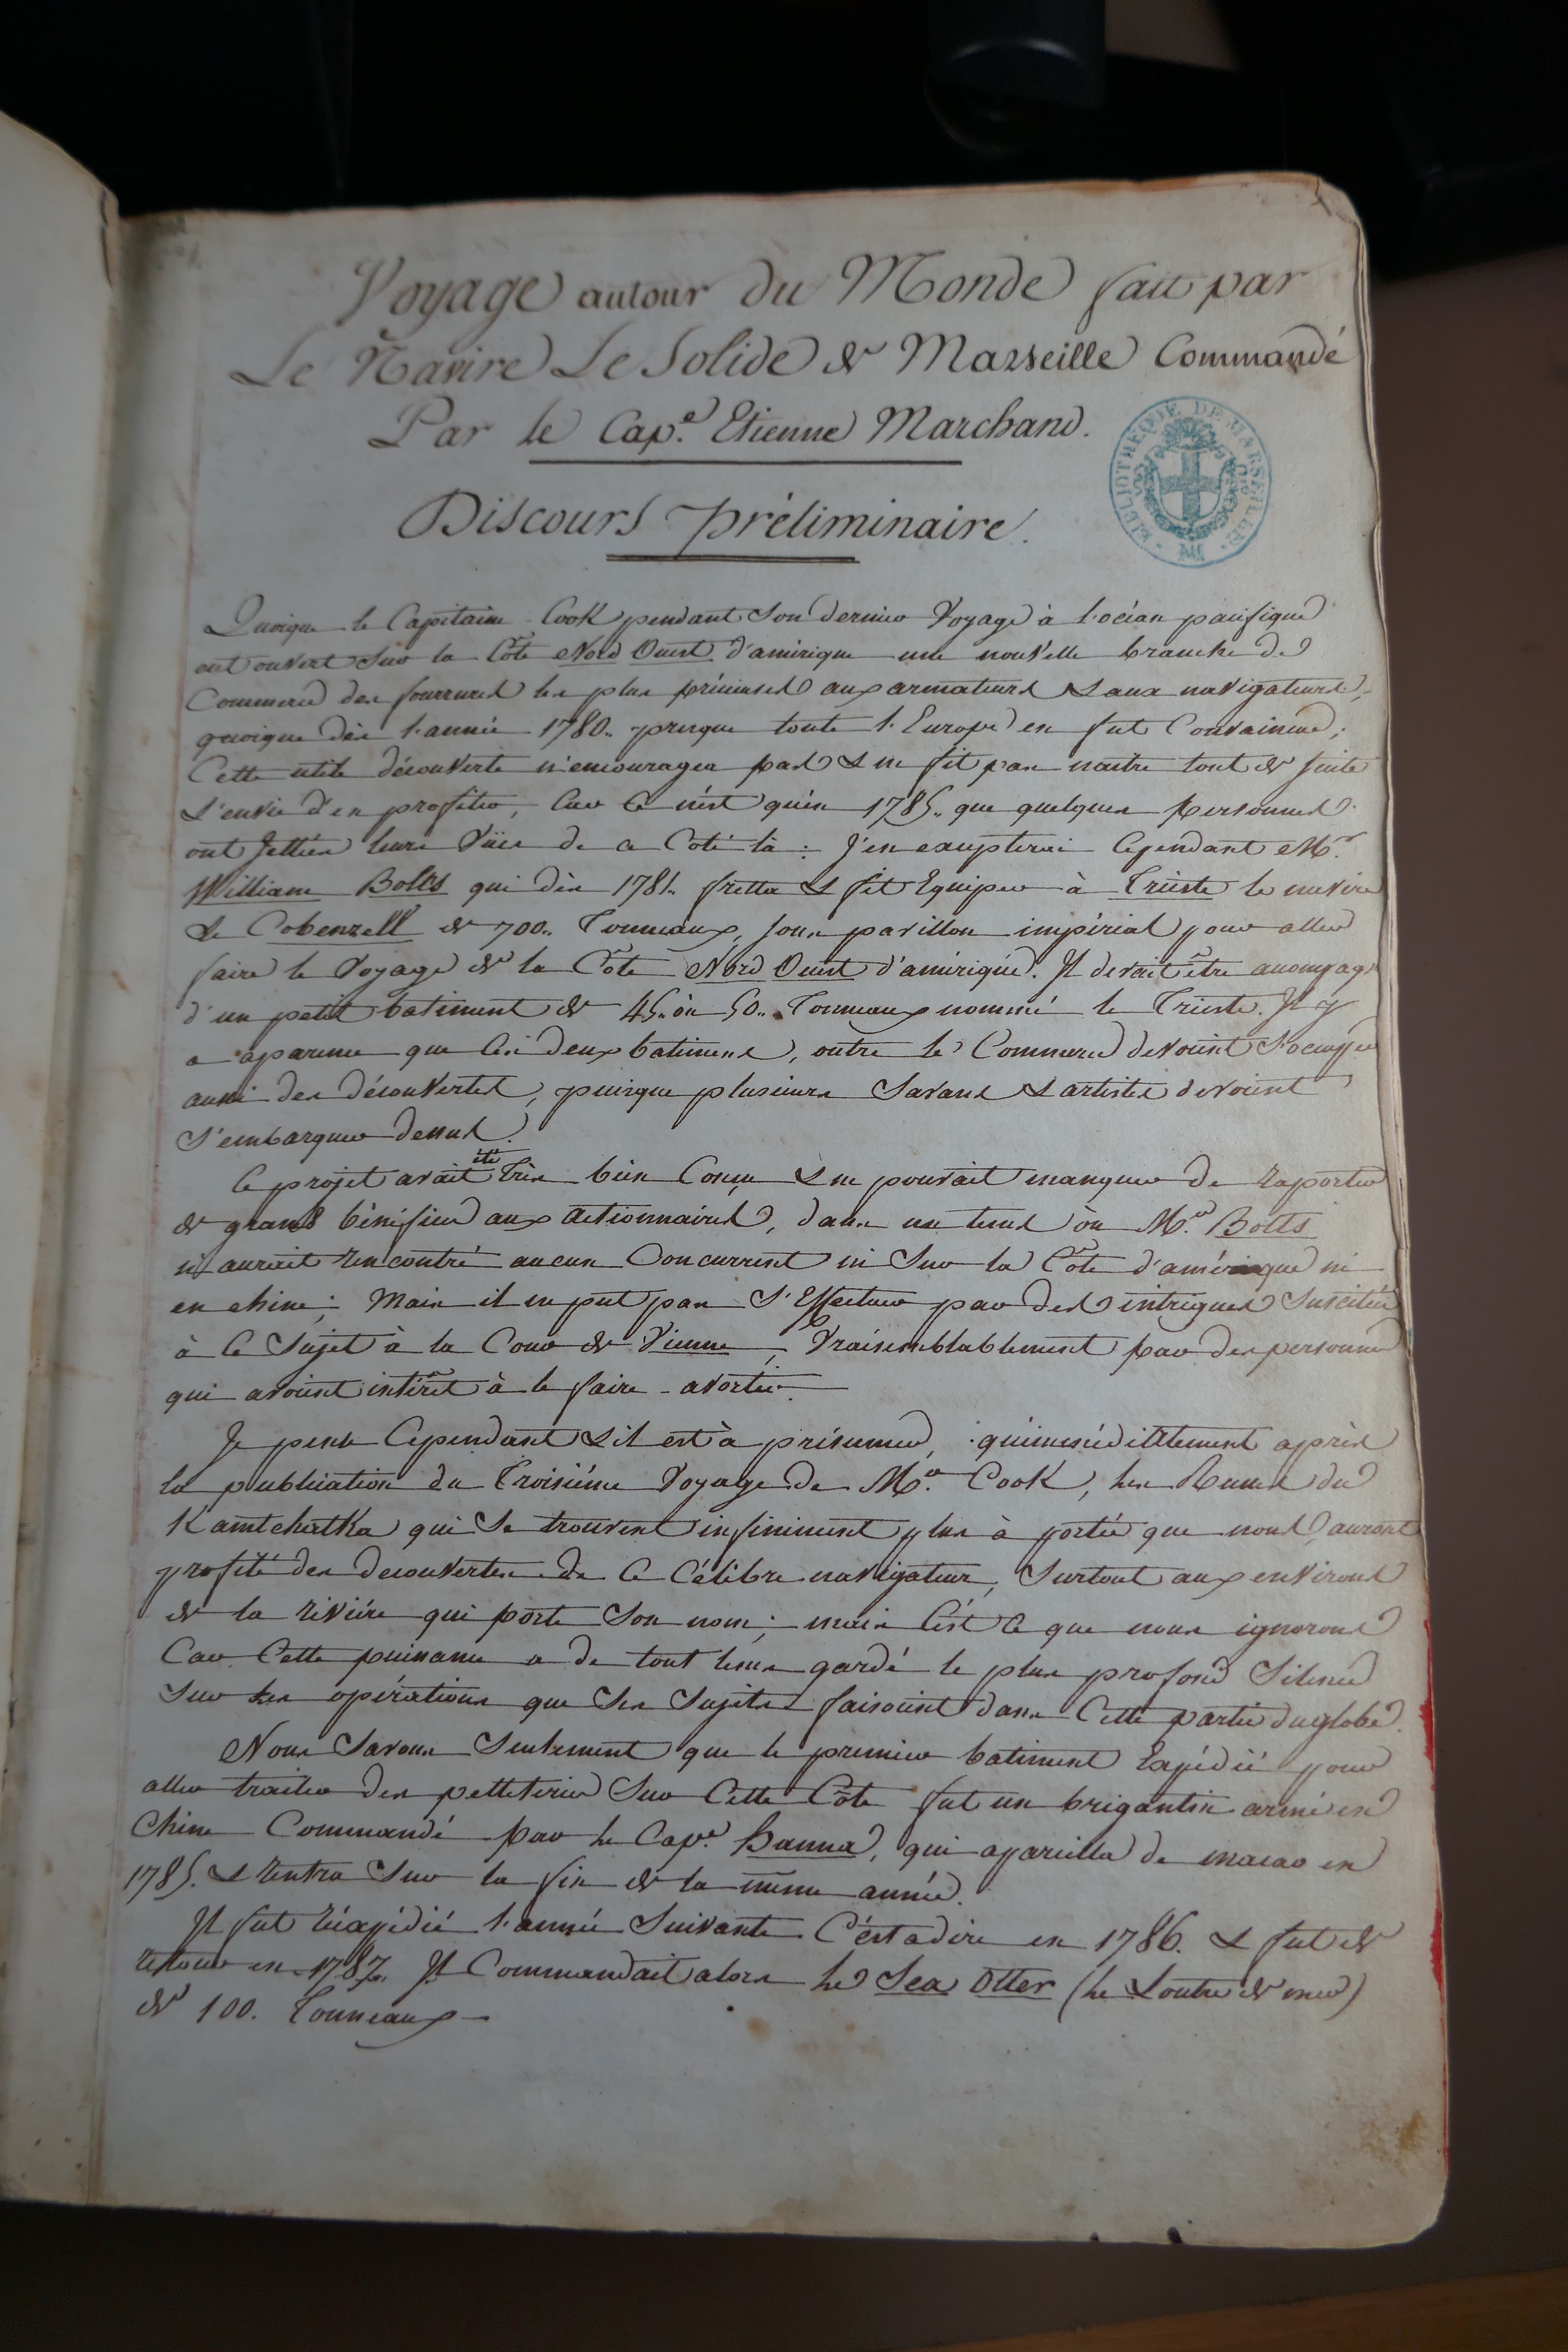 Voyage autour du Monde fait par
Le Navire Le Solide de Marseille Commandé
Par le Cap.e Etienne Marchand.
BIBLIOTHEQUE DE MARSEILLE
Discours préliminaire.
Quoique le Capitaine Cook pendant Son dernier Voyage à l'océan pacifique
eut ouvert Sur la Côte Nord Ouest d'amérique une nouvelle branche de
Commerce des fourrures les plus précieuses aux armateurs & aux navigateurs,
quoique dès l'année 1780. presque toute l'Europe en fut Convaincue;
Cette utile découverte n'encouragea pas & ne fit pas naitre tout de suite
L'envie d'en profiter, Car Ce n'est qu'en 1785. que quelques personnes
ont Jettées leurs Vües de ce Coté là: J'en excepterai Cependant Mr.
William Bolts qui dès 1781. fretta & fit Equiper à Trieste le navire
Le Cobenzell de 700. Tonneaux, sous pavillon impérial pour aller
faire le Voyage de la Côte Nord Ouest d'amérique. Il devait être acompagé
d'un petit batiment de 45. ou 50. Tonneaux nommé le Trieste. Il y
a aparence que Ces deux batimens, outre le Commerce devoient S'occuper
aussi des découvertes, puisque plusieurs Savans & artistes devoient
S'embarquer dessus.
Ce projet avait été Très bien Conçu & ne pouvait manquer de raporter
de grands bénéfices aux actionnaires, dans un tems où Mr. Bolts
n'aurait rencontré aucun Concurrent ni Sur la Côte d'amérique ni
en chine; Mais il ne put pas S'Effectuer par des intrigues Suscitées
à Ce Sujet à la Cour de Vienne, Vraisemblablement par des personnes
qui avoient intérêt à le faire avorter.
Je pense Cependant & il est à présumer, qu'immédiatement après
la publication du Troisiéme Voyage de Mr. Cook, les Russes du
Kamtchatka qui Se trouvent infiniment plus à portée que nous, auront
profité des decouvertes de Ce Célèbre navigateur, Surtout aux environs
de la rivière qui porte Son nom; mais C'est Ce que nous ignorons
Car Cette puissance a de tout tems gardé le plus profond Silence
Sur les opérations que Ses Sujets faisoient dans Cette partie du globe.
Nous Savons Seulement que le premier batiment Expédié pour
aller traiter des pelleteries Sur Cette Côte fut un brigantin armé en
Chine Commandé par le Cap.e Hanna, qui apareilla de macao en
1785. & rentra Sur la fin de la même année.
Il fut réexpédié l'année Suivante C'est a dire en 1786. & fut de
retour en 1787. Il Commandait alors le Sea Otter (la Loutre de mer)
de 100. Tonneaux